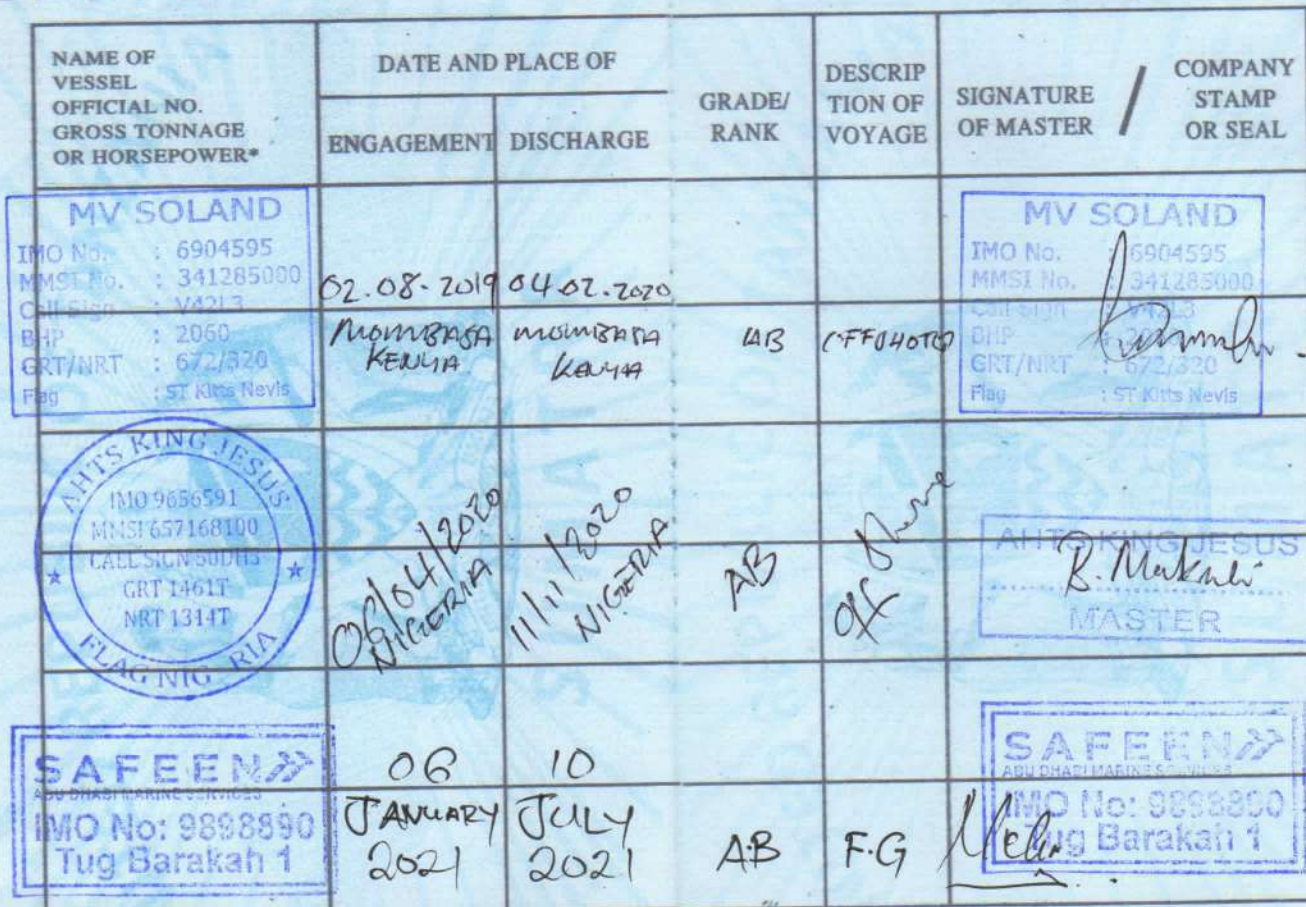 NAME OF
VESSEL
OFFICIAL NO.
GROSS TONNAGE
OR HORSEPOWER*
DATE AND PLACE OF
ENGAGEMENT
DISCHARGE
GRADE/
RANK
DESCRIP
TION OF
VOYAGE
SIGNATURE
OF MASTER
/
COMPANY
STAMP
OR SEAL
MV SOLAND
IMO No. : 6904595
MMSI No. : 341285000
Call Sign : V42L3
BHP : 2060
GRT/NRT : 672/320
Flag : ST Kitts Nevis
02.08.2019
MOMBASA
KENYA
04.02.2020
MOMBASA
KENYA
AB
MV SOLAND
IMO No. : 6904595
MMSI No. : 341285000
Call Sign : V42L3
BHP
GRT/NRT : 672/320
Flag : ST Kitts Nevis
AHTS KING JESUS
IMO 9656591
MMSI 657168100
CALL SIGN
GRT 1461T
NRT 1314T
FLAG NIG RIA
06/04/2020
NIGERIA
11/11/2020
NIGERIA
AB
Off Shore
AHTS KING JESUS
MASTER
SAFEEN
ABU DHABI MARINE SERVICES
IMO No: 9898890
Tug Barakah 1
06
JANUARY
2021
10
JULY
2021
AB
F.G
SAFEEN
ABU DHABI MARINE SERVICES
IMO No: 9898890
Tug Barakah 1